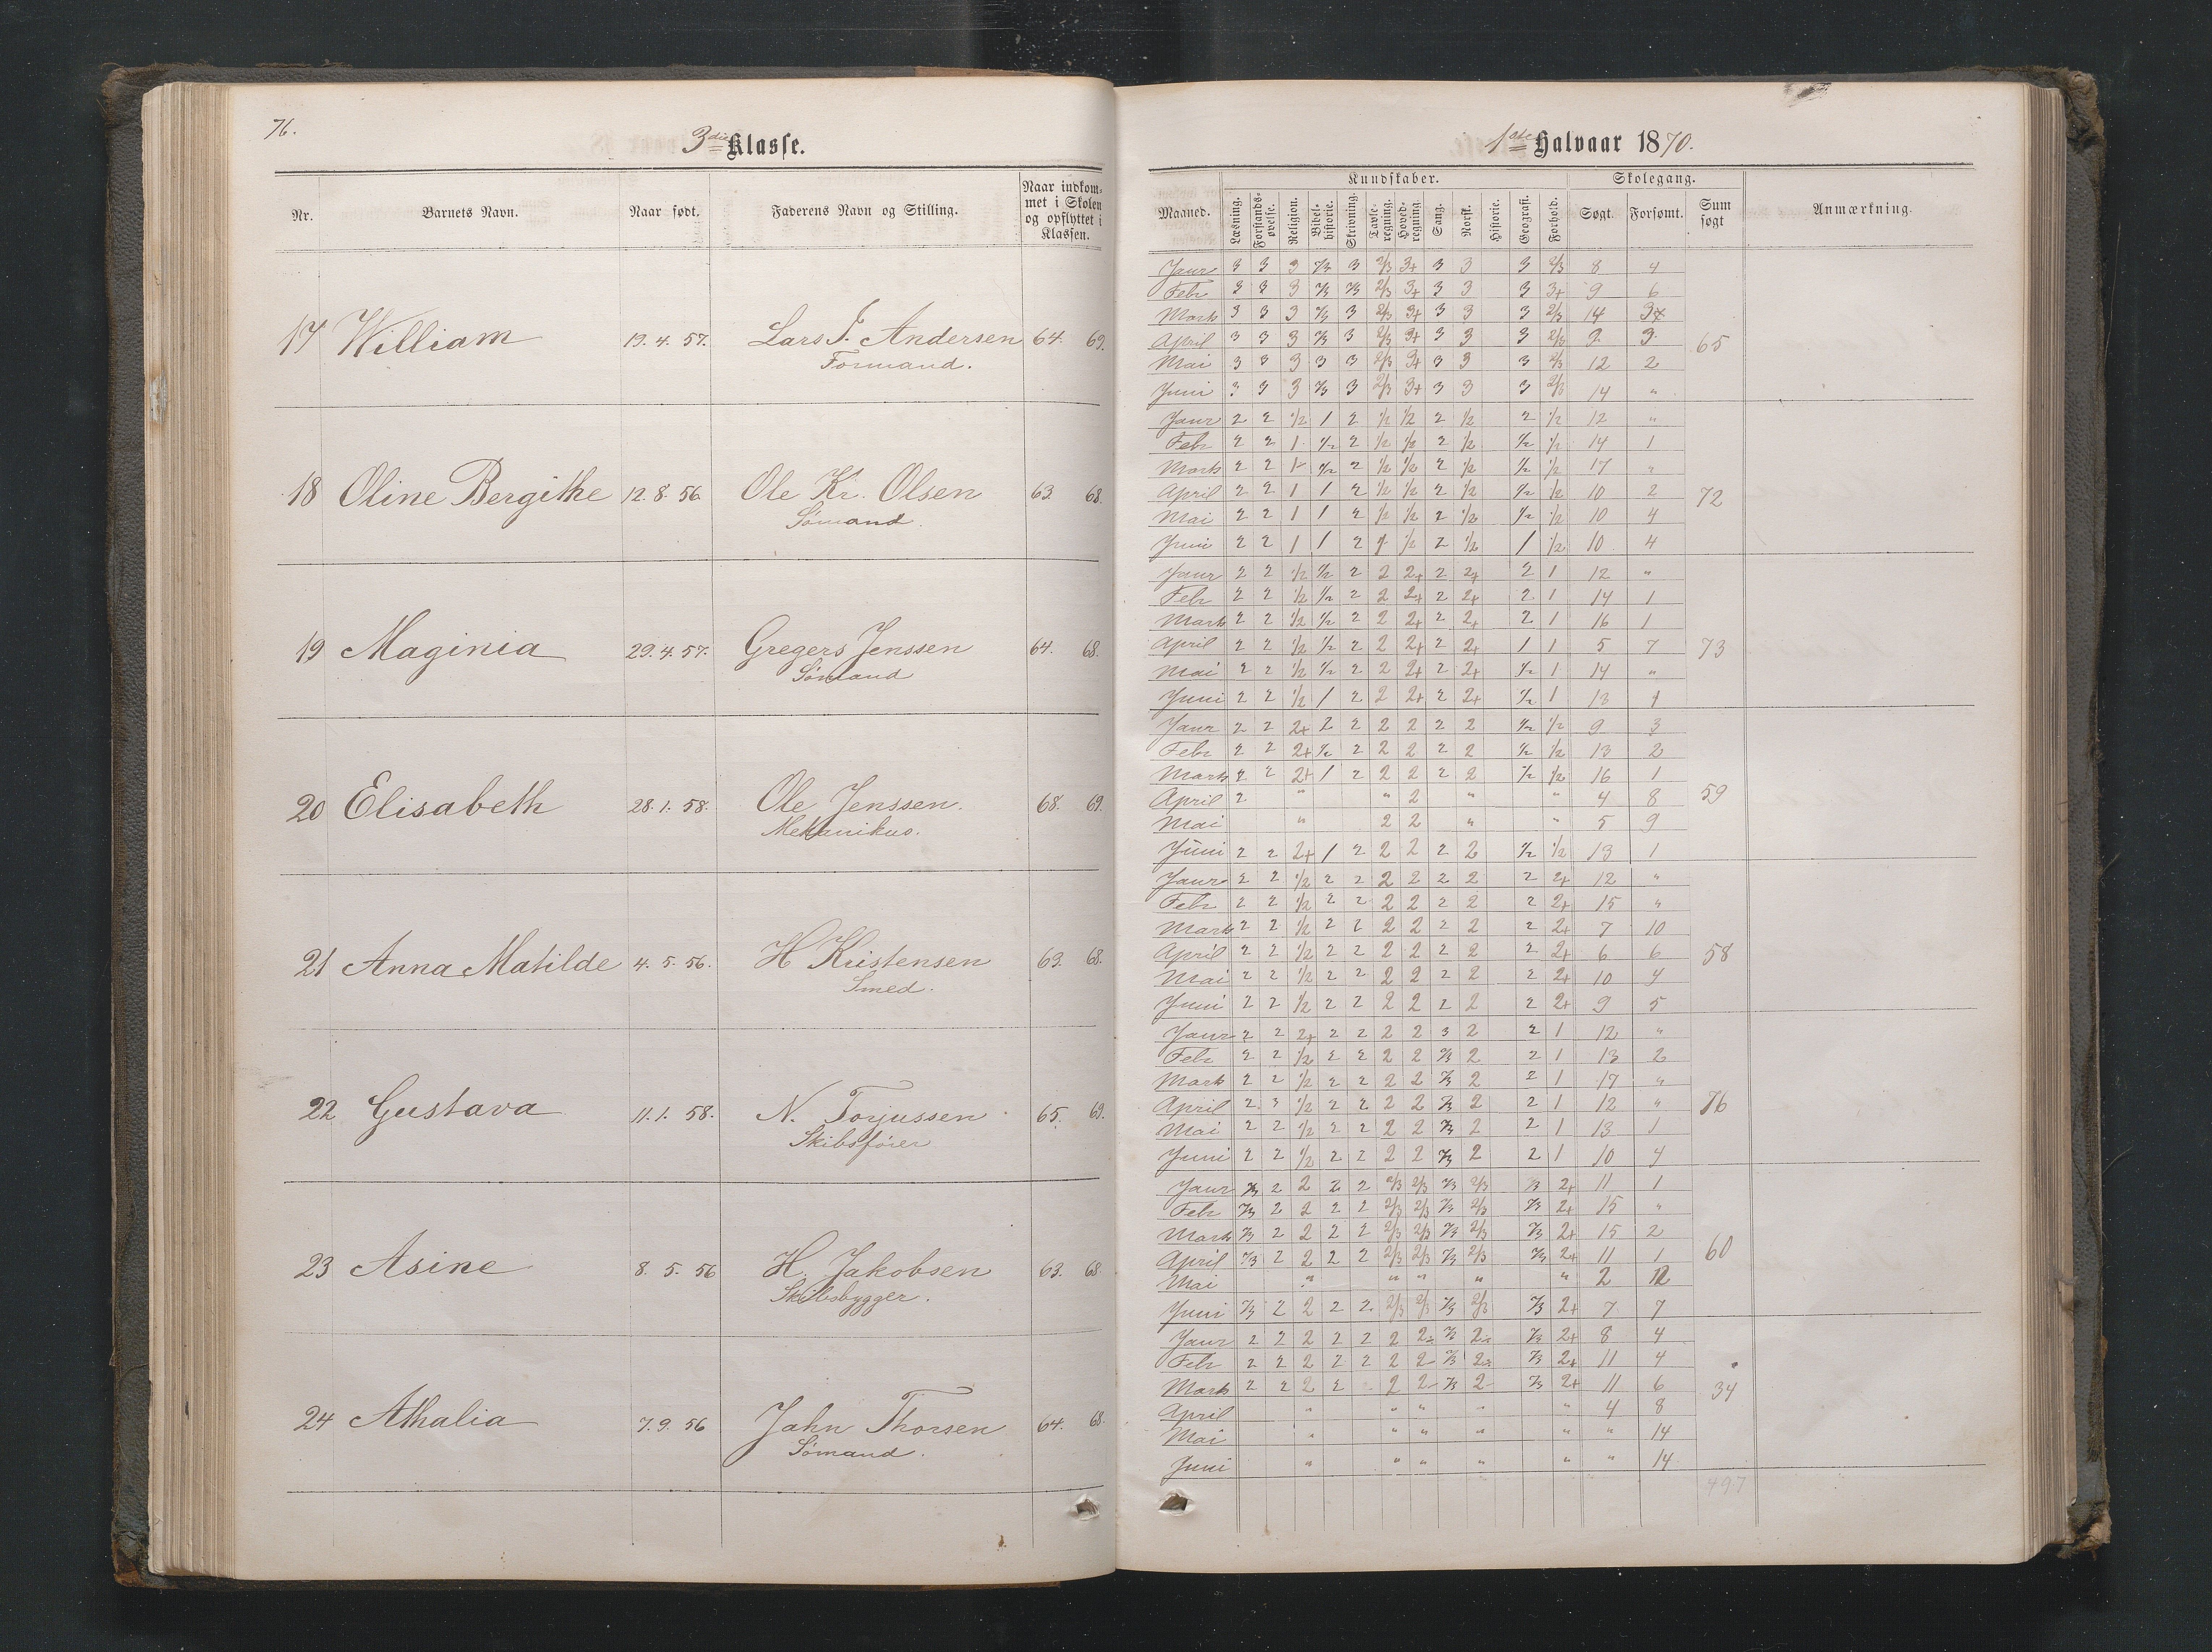 76.
3die Klasse.
Nr.
Barnets Navn.
Naar født.
Faderens Navn og Stilling.
Naar indkom-
met i Skolen
og opflyttet i
Klassen.
17 William 19. 4. 57. Lars F. Andersen 64. 69.
Formand.
18 Oline Bergithe 12. 8. 56. Ole Kr. Olsen 63. 68.
Sømand.
19 Maginia 29. 4. 57. Gregers Jenssen 64. 68.
Sømand
20 Elisabeth 28. 1. 58. Ole Jenssen. 68. 69.
Mekanikus.
21 Anna Matilde 4. 5. 56. H Kristensen 63. 68.
Smed.
22 Gustava 11. 1. 58. N. Torjussen 65. 69.
Skibsfører
23 Asine 8. 5. 56 H. Jakobsen 63. 68.
Skibsbygger.
24 Athalia 7. 9. 56 Jahn Thorsen 64. 68.
Sømand.
1ste Halvaar 1870.
Kundskaber. Skolegang.
Maaned. Læsning. Forstands-øvelse. Religion. Bibel-historie. Skrivning. Tavle-regning. Hoved-regning. Sang. Norsk. Historie. Geografi. Forhold. Søgt. Forsømt. Sum søgt Anmærkning.
Janr 3 3 3 2/3 3 2/3 3+ 3 3 3 2/3 8 4
Febr 3 3 3 2/3 2/3 2/3 3+ 3 3 3 3+ 9 6
Marts 3 3 3 2/3 3 2/3 3+ 3 3 3 2/3 14
April 3 3 3 2/3 3 2/3 3+ 3 3 3 2/3
65
Mai 3 3 3 3 3 2/3 3+ 3 3 3 2/3 12 2
Juni 3 3 3 2/3 3 2/3 3+ 3 3 3 2/3 14 "
Janr 2 2 1/2 1 2 1/2 1/2 2 1/2 2 1/2 12 "
Febr 2 2 1 1/2 2 1/2 1/2 2 1/2 1/2 1/2 14 1
Marts 2 2 1 1/2 2 1/2 1/2 2 1/2 1/2 1/2 17 "
April 2 2 1 1 2 1/2 1/2 2 1/2 1/2 1/2 10 2
72
Mai 2 2 1 1 2 1/2 1/2 2 1/2 1/2 1/2 10 4
Juni 2 2 1 1 2 1/2 2 1/2 1 1/2 10 4
Janr 2 2 1/2 1/2 2 2 2+ 2 2+ 2 1 12 "
Febr 2 2 1/2 1/2 2 2 2+ 2 2+ 2 1 14 1
Marts 2 2 1/2 1/2 2 2 2+ 2 2+ 2 1 16 1
April 2 2 1/2 1/2 2 2 2+ 2 2+ 1 1 5 7 73
Mai 2 2 1/2 1/2 2 2 2+ 2 2+ 1/2 1 14 "
Juni 2 2 1/2 1 2 2 2+ 2 2+ 1/2 1 13 1
Janr 2 2 2+ 2 2 2 2 2 2 1/2 1/2 9 3
Febr 2 2 2+ 1/2 2 2 2 2 2 1/2 1/2 13 2
Marts 2 2 2+ 1 2 2 2 2 2 1/2 1/2 16 1
April 2 " " 2 " " 4 8 59
Mai " 2 2 " " 5 9
Juni 2 2 2+ 1 2 2 2 2 2 1/2 1/2 13 1
Janr 2 2 1/2 2 2 2 2 2 2 2 2+ 12 "
Febr 2 2 1/2 2 2 2 2 2 2 2 2+ 15 "
Marts 2 2 1/2 2 2 2 2 2 2 2 2+ 7 10
April 2 2 1/2 2 2 2 2 2 2 2 2+ 6 6 58
Mai 2 2 1/2 2 2 2 2 2 2 2 2+ 10 4
Juni 2 2 1/2 2 2 2 2 2 2 2 2+ 9 5
Janr 2 2 2+ 2 2 2 2 3 2 2 1 12 "
Febr 2 2 1/2 2 2 2 2 2/3 2 2 1 13 2
Marts 2 2 1/2 2 2 2 2 2/3 2 2 1 17 "
April 2 2 1/2 2 2 2 2 2/3 2 2 1 12 " 76
Mai 2 2 1/2 2 2 2 2 2/3 2 2 1 13 1
Juni 2 2 1/2 2 2 2 2 2/3 2 2 1 10 4
Janr 2/3 2 2 2 2 2/3 2/3 2/3 2/3 2/3 2+ 11 1
Febr 2/3 2 2 2 2 2/3 2/3 2/3 2/3 2/3 2+ 15 "
Marts 2/3 2 2 2 2 2/3 2/3 2/3 2/3 2/3 2+ 15 2
April 2/3 2 2 2 2 2/3 2/3 2/3 2/3 2/3 2+ 11 1 60
Mai " " " " " 2 12
Juni 2/3 2 2 2 2 2/3 2/3 2/3 2/3 2/3 2+ 7 7
Janr 2 2 2 2 2 2 2- 2/3 2- 2/3 2+ 8 4
Febr 2 2 2 2 2 2 2- 2/3 2- 2/3 2+ 11 4
Marts 2 2 2 2 2 2- 2/3 2- 2/3 2+ 11 6 34
April " " " " " 4 8
Mai " " " " " " 14
Juni " " " " " " 14
497